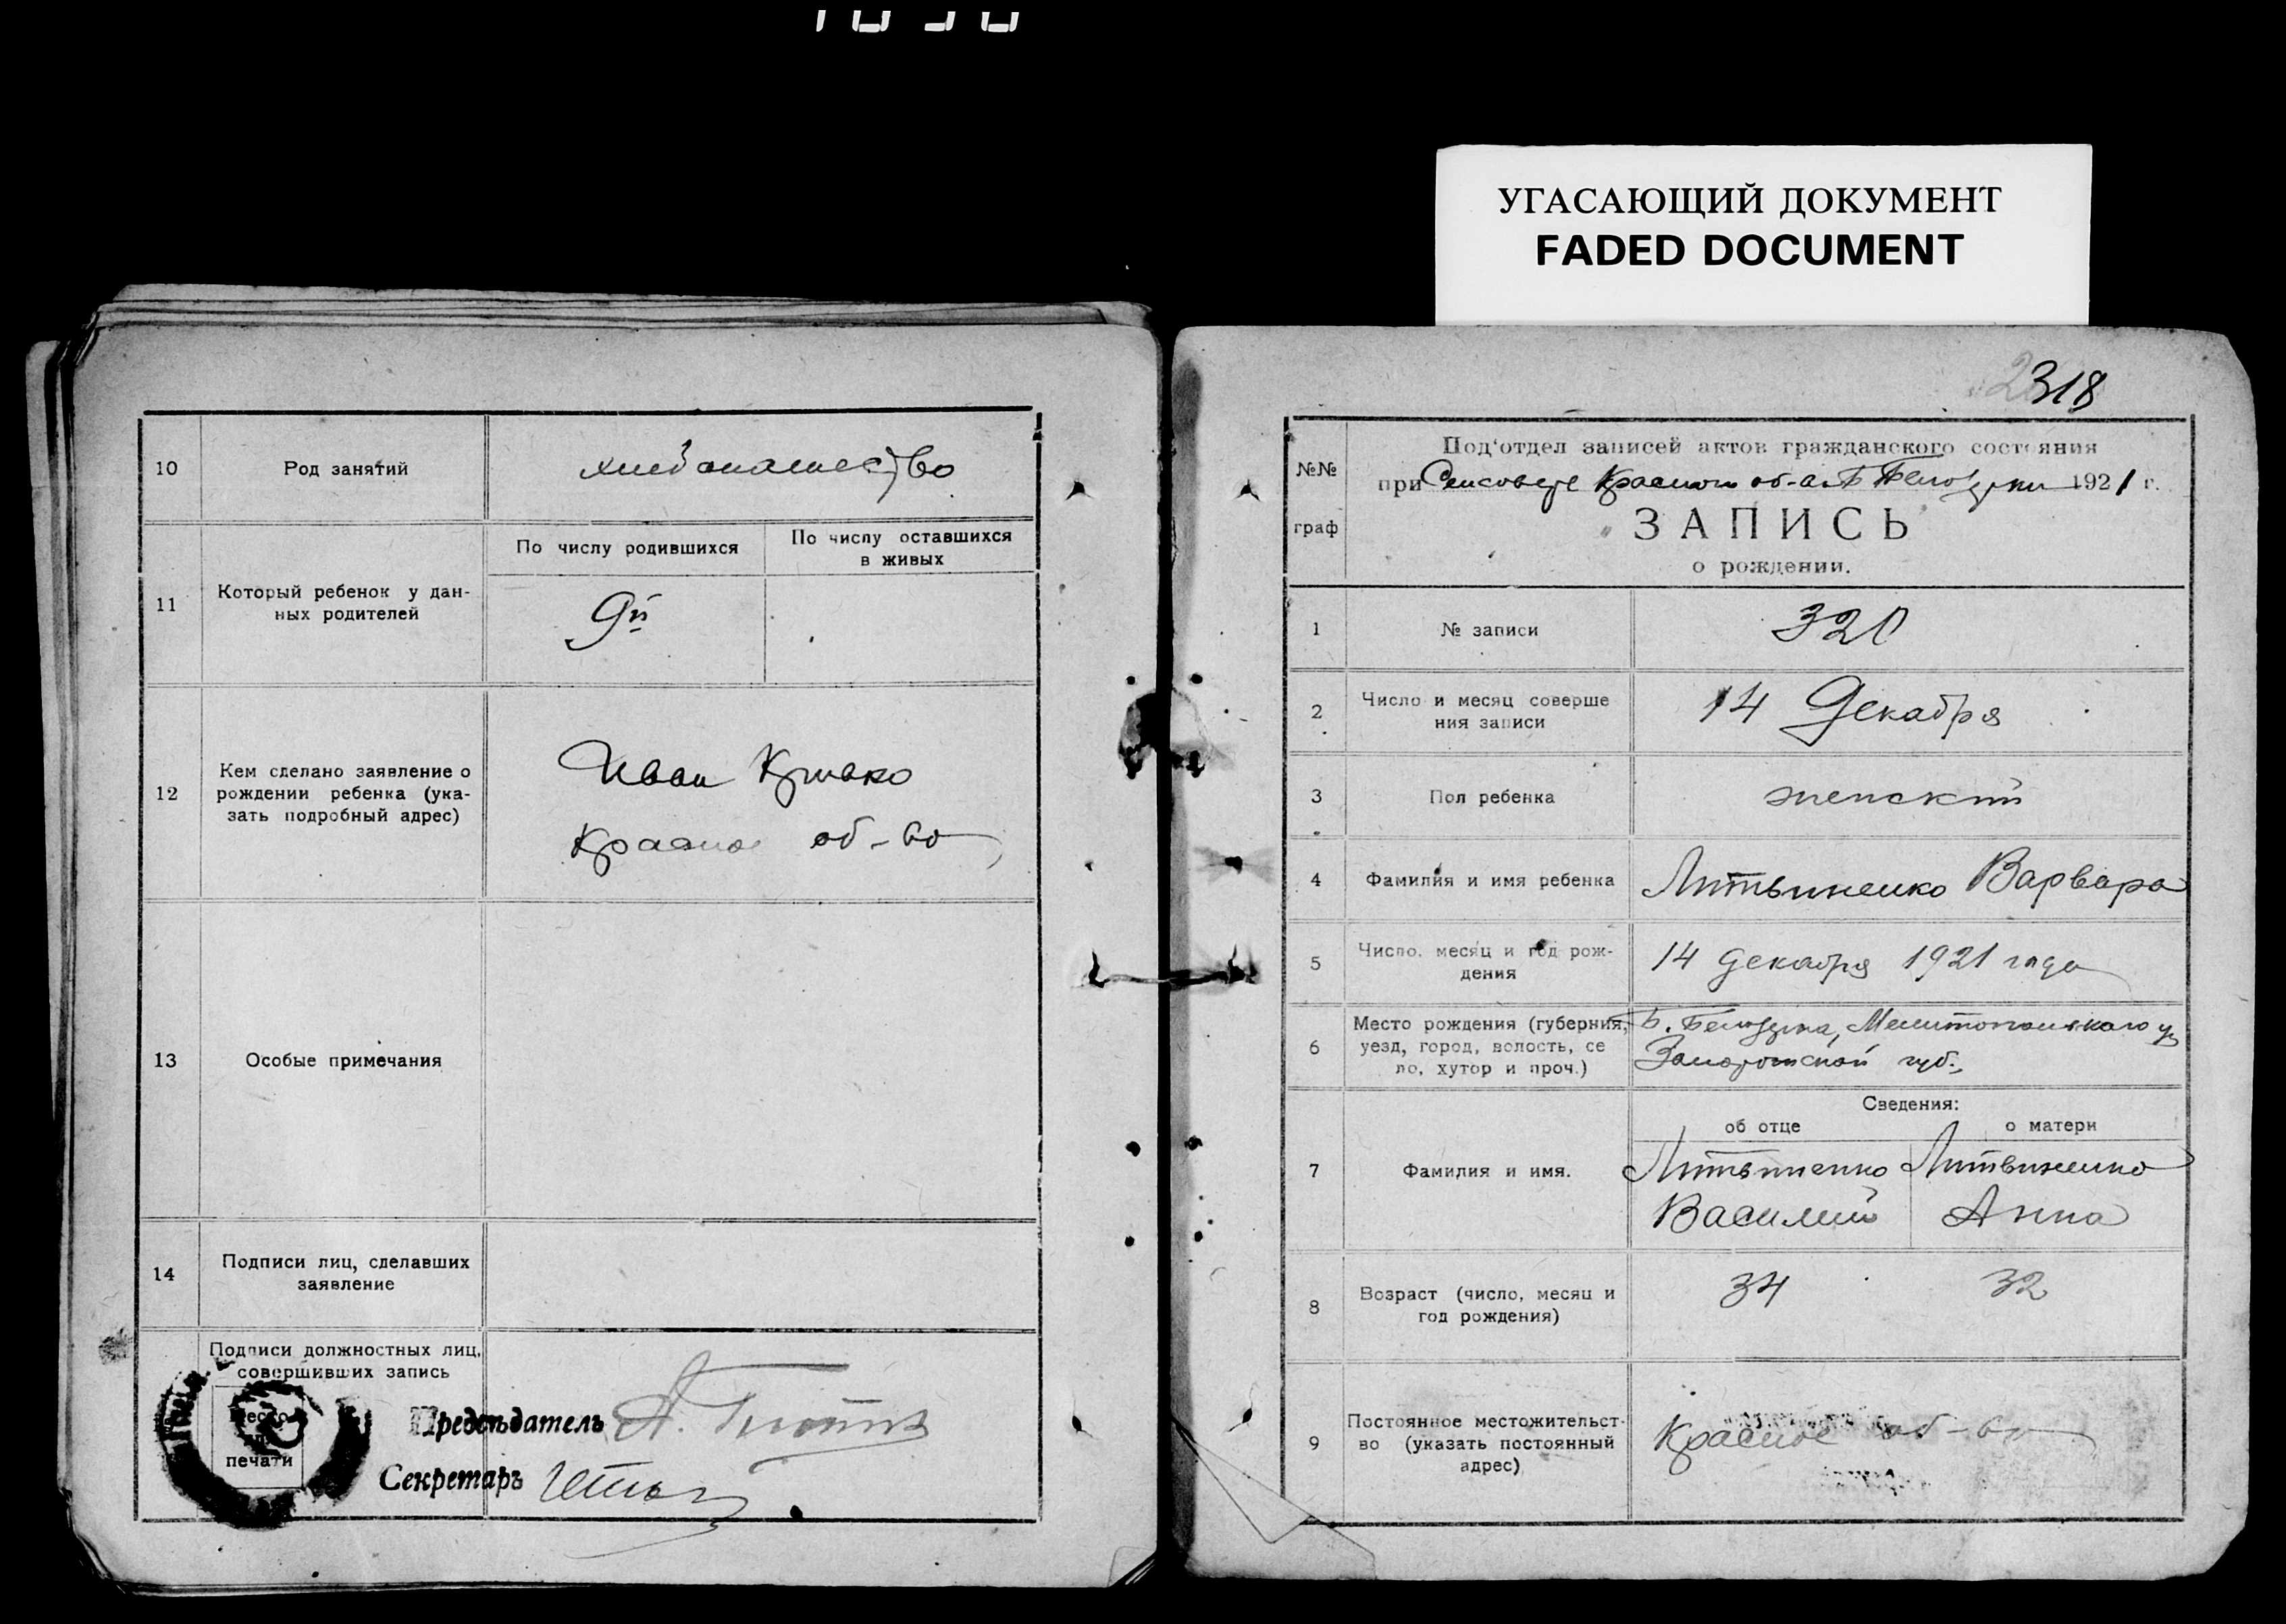 УГАСАЮЩИЙ ДОКУМЕНТ
FADED DOCUMENT
10
Род занятий
хлебопашество
11
Который ребенок у дан-
ных родителей
По числу родившихся
По числу оставшихся
в живых
9й
12
Кем сделано заявление о
рождении ребенка (ука-
зать подробный адрес)
Иван Кривко
Красное об-во
13
Особые примечания
14
Подписи лиц, сделавших
заявление
Подписи должностных лиц,
совершивших запись
Место
печати
Председатель
Секретарь
318
№№
граф
Под'отдел записей актов гражданского состояния
при Сельсовете Красного об-а. Б Белозерки 1921 г.
ЗАПИСЬ
о рождении.
1
№ записи
320
2
Число и месяц соверше
ния записи
14 Декабря
3
Пол ребенка
женский
4
Фамилия и имя ребенка
Литвиненко Варвара
5
Число, месяц и год рож-
дения
14 декабря 1921 года
6
Место рождения (губерния,
уезд, город, волость, се
ло, хутор и проч.)
Б. Белозерка, Мелитопольского у
Запорожской губ.
7
Фамилия и имя.
Сведения:
об отце
о матери
Литвиненко
Василий
Литвиненко
Анна
8
Возраст (число, месяц и
год рождения)
34
32
9
Постоянное местожительст-
во (указать постоянный
адрес)
Красное об-во